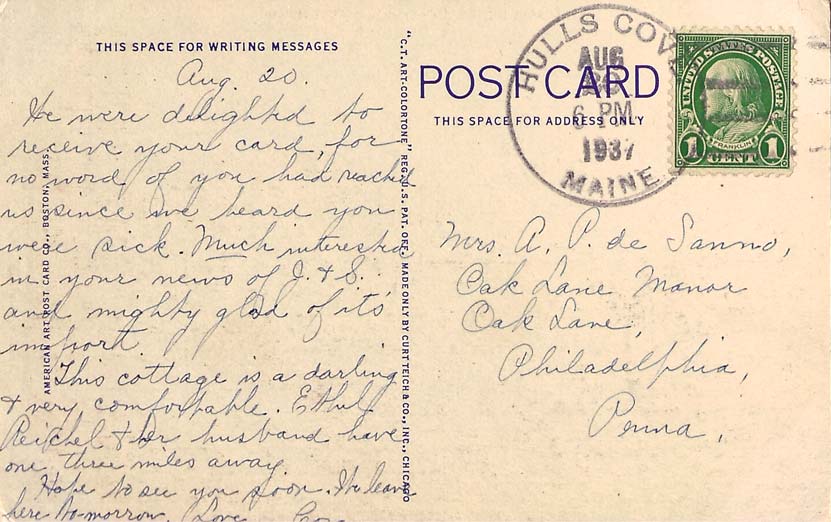 THIS SPACE FOR WRITING MESSAGES
Aug. 20.
We were delighted to
receive your card, for
no word of you had reached
us since we heard you
were sick. Much interested
in your news of J. & S.
and mighty glad of its
import.
This cottage is a darling
& very comfortable. Ethel
Reichel & her husband have
one three miles away.
Hope to see you soon. We leave
here to-morrow. Love
AMERICAN ART POST CARD CO., BOSTON, MASS.
"C.T. ART-COLORTONE" REG. U.S. PAT. OFF. MADE ONLY BY CURT TEICH & CO., INC., CHICAGO
POST CARD
THIS SPACE FOR ADDRESS ONLY
HULLS COVE
AUG
6 PM
1937
MAINE
UNITED STATES POSTAGE
FRANKLIN
1 CENT 1
Mrs. A. P. de Sanno,
Oak Lane Manor
Oak Lane,
Philadelphia,
Penna,